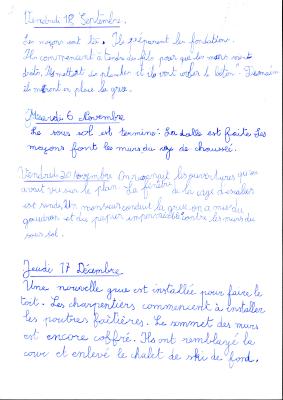 Vendredi 18 Septembre.
Les maçons sont là. Ils préparent les fondations.
Ils commencent à tendre des fils pour que les murs soient
droits, ils mettent des planches et ils vont couler le béton. Demain
ils mettront en place la grue.
Mercredi 6 Novembre
Le sous sol est terminé. La dalle est faite. Les
maçons font les murs du rez de chaussée.
Vendredi 20 novembre On voyait les ouvertures qu'on
avait vu sur le plan. La fenêtre de la cage d'escalier
est ronde. Un monsieur conduit la grue. on a mis du
goudron et du papier imperméable contre les murs du
sous sol.
Jeudi 17 Décembre
Une nouvelle grue est installée pour faire le
toit. Les charpentiers commencent à installer
les poutres faîtières. Le sommet des murs
est encore coffré. Ils ont remblayé la
cour et enlevé le chalet de ski de fond.